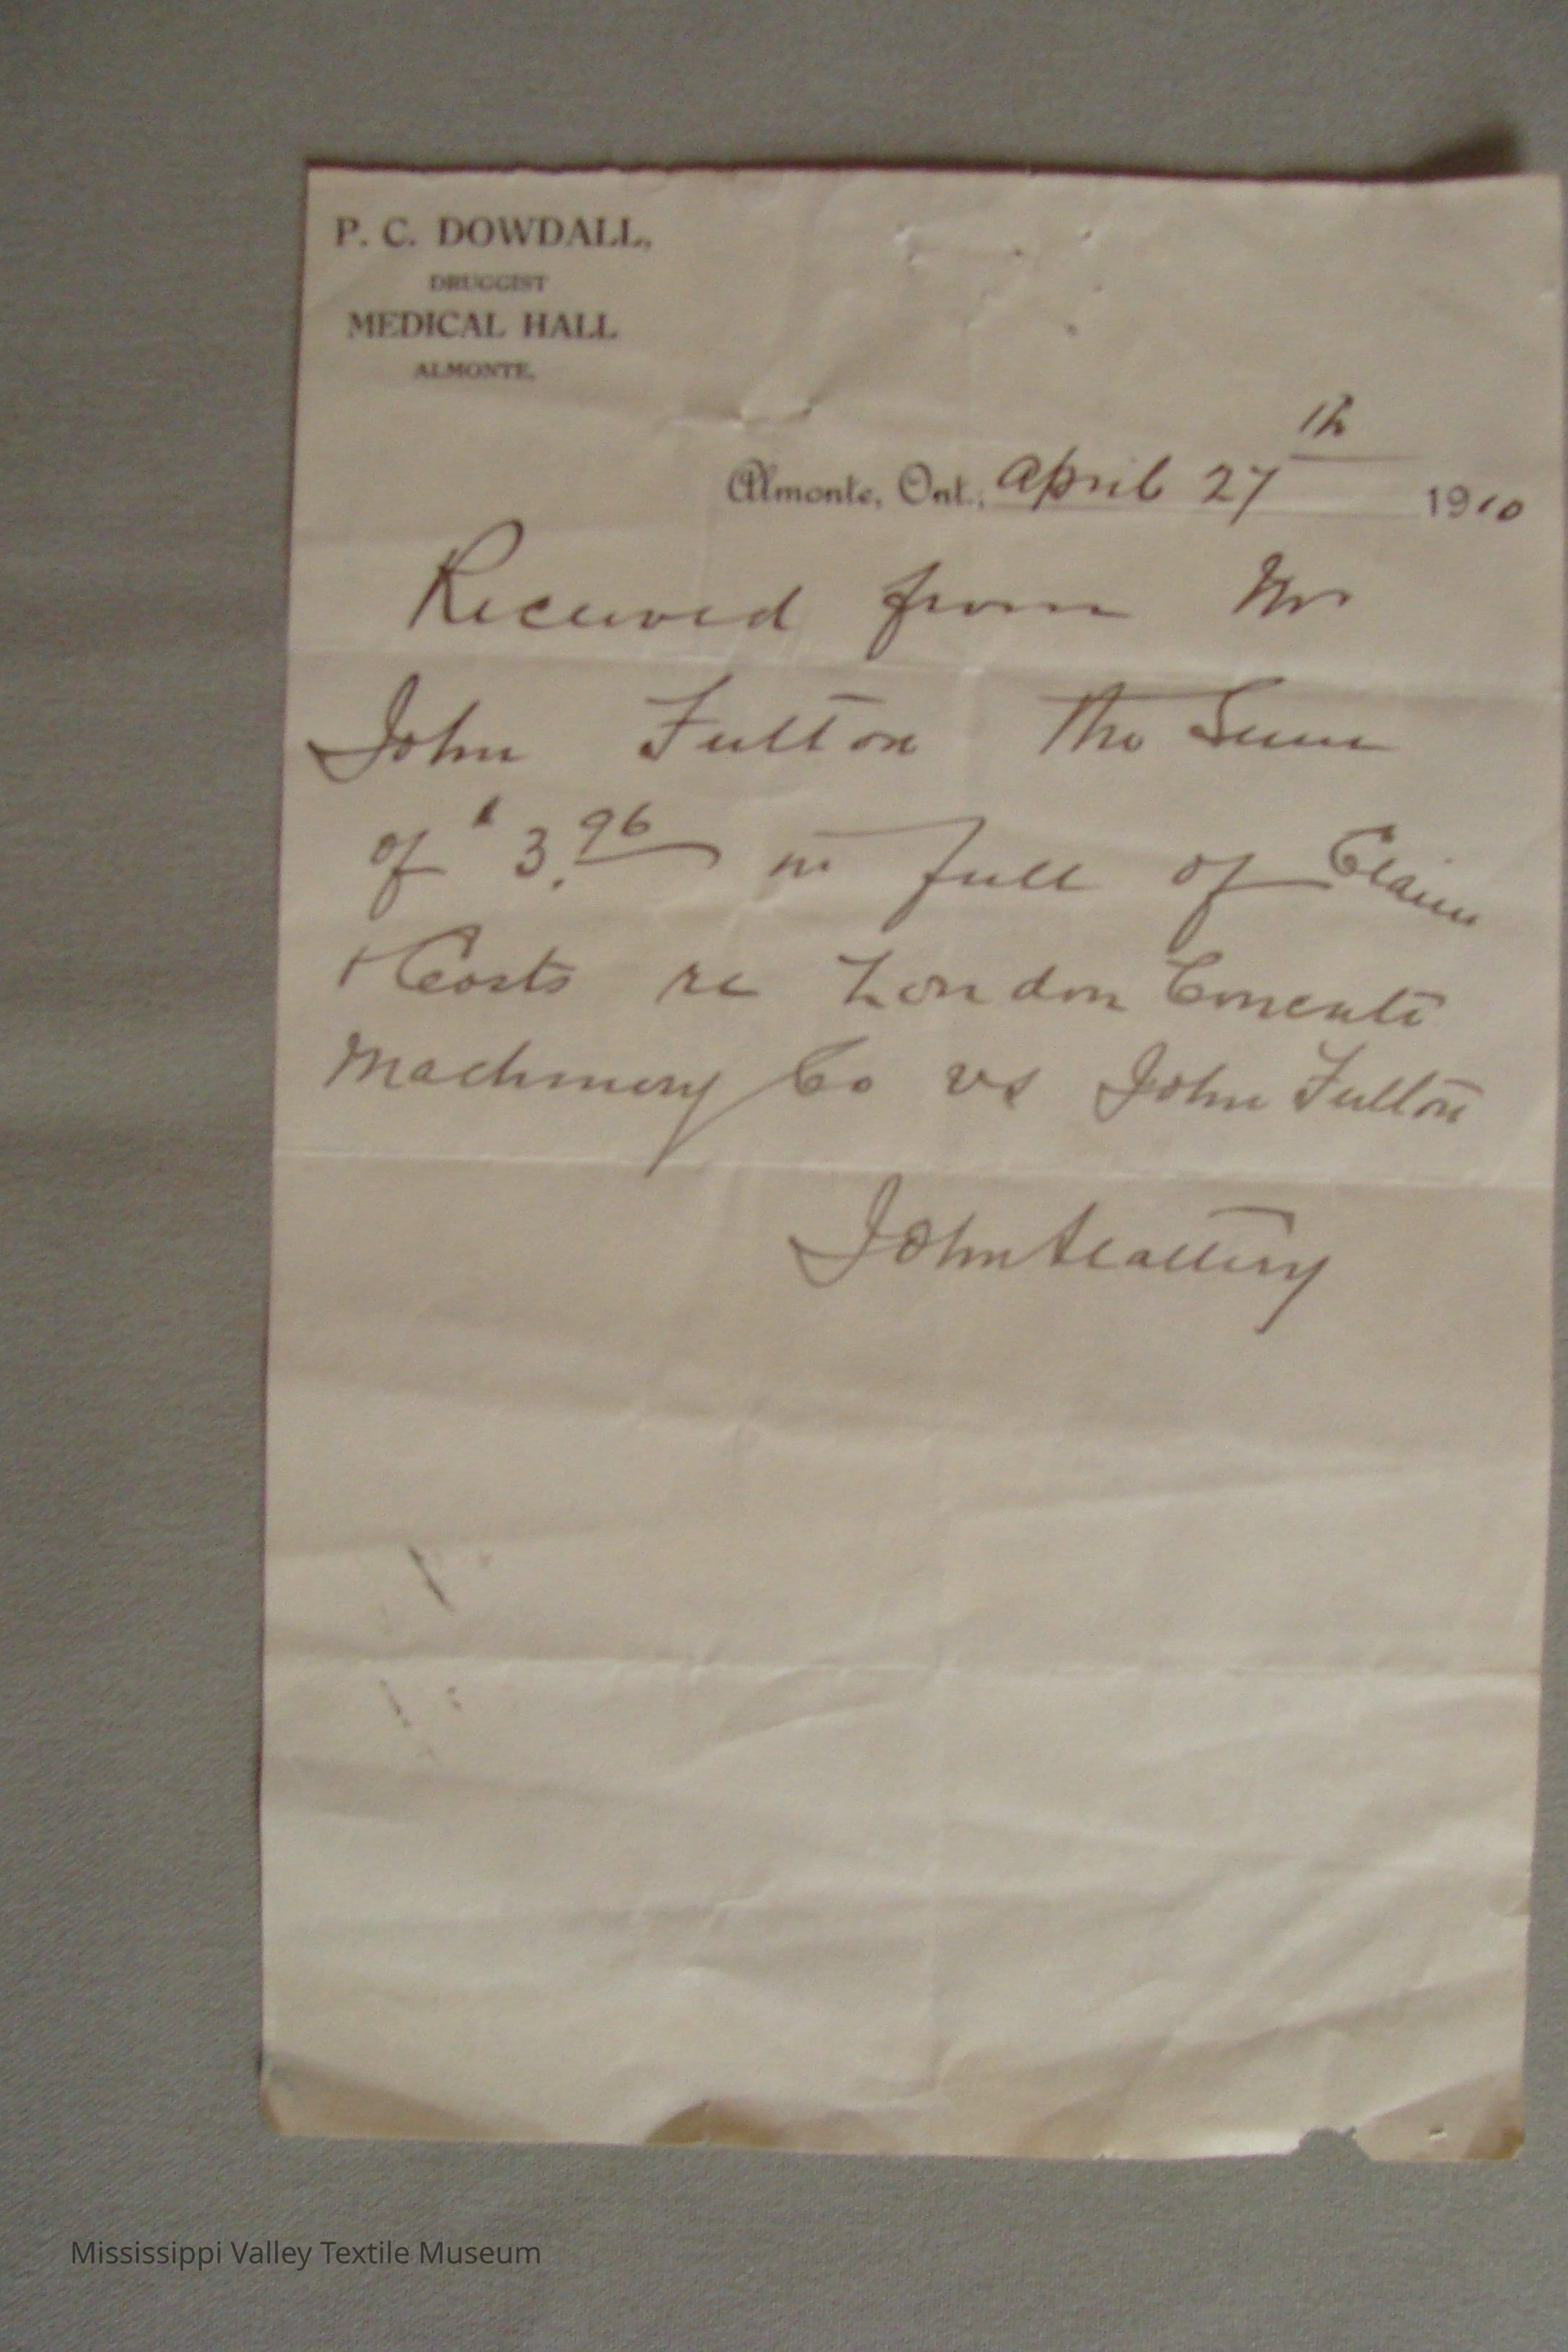 P. C. DOWDALL,
DRUGGIST
MEDICAL HALL
ALMONTE.
Almonte, Ont., April 27th 1910
Received from Mr
John Fulton the Sum
of $3.96 in full of Claim
+ Costs re London Concrete
Machinery Co vs John Fulton
John Slattery
Mississippi Valley Textile Museum